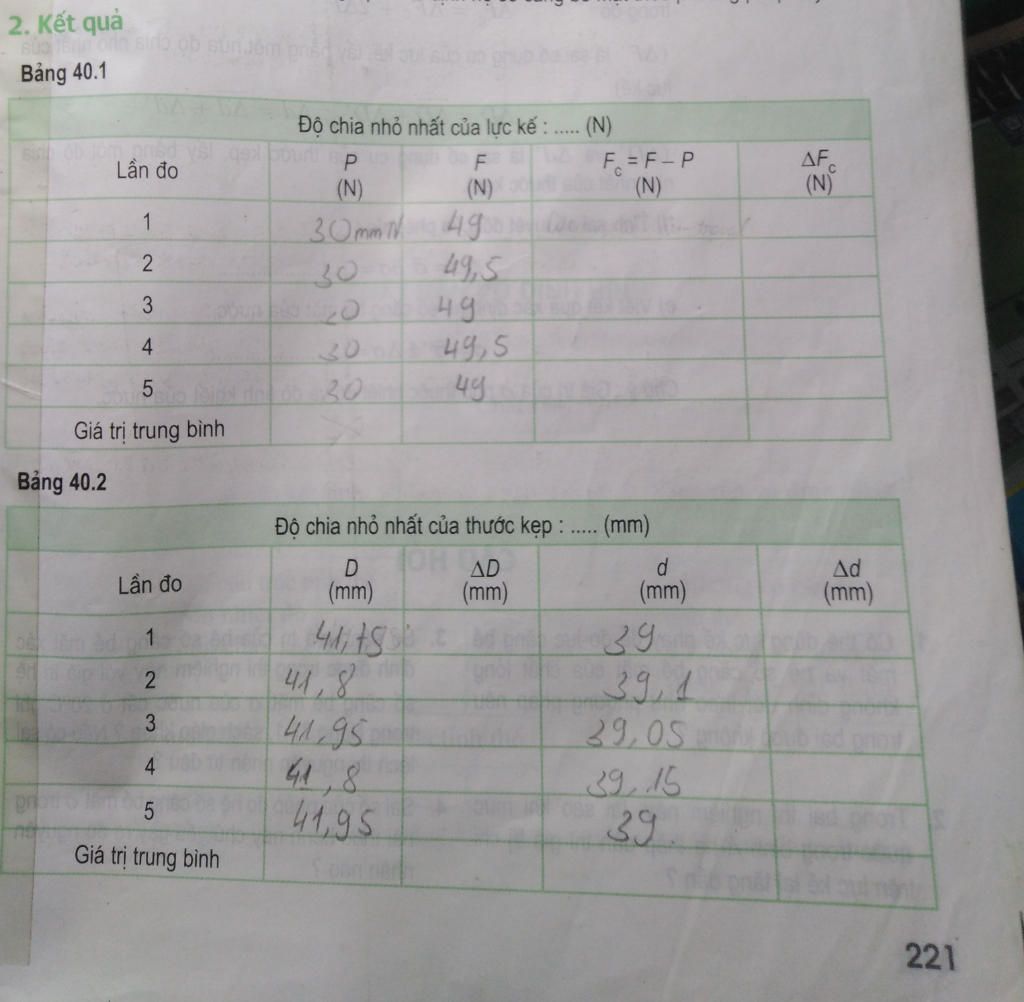 2. Kết quả
Bảng 40.1
Độ chia nhỏ nhất của lực kế : ..... (N)
Lần đo P (N) F (N) Fc = F – P (N) ΔFc (N)
1 30mmN 49
2 30 49,5
3 20 49
4 30 49,5
5 30 49
Giá trị trung bình
Bảng 40.2
Độ chia nhỏ nhất của thước kẹp : ..... (mm)
Lần đo D (mm) ΔD (mm) d (mm) Δd (mm)
1 41,75 39
2 41,8 39,1
3 41,95 39,05
4 41,8 39,15
5 41,95 39
Giá trị trung bình
221